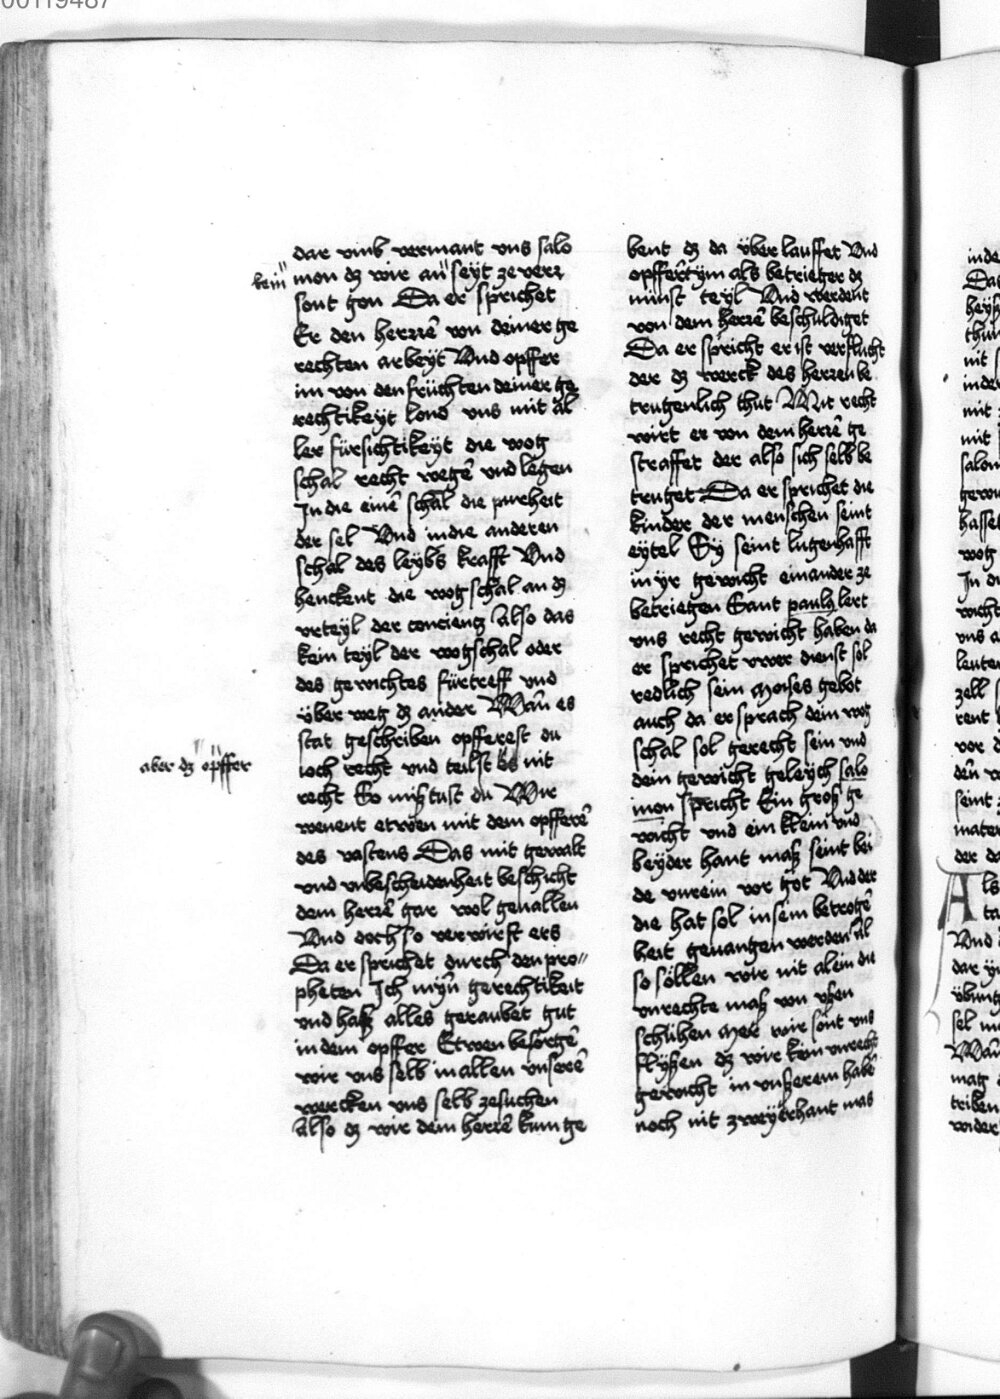 00119487
dar vmb vermant vns salo
kein
mon dz wir an seyt ze verr
sont gon Da er sprichet
Er den herrē von deiner ge
rechten arbeyt Vnd opffer
im von den früchten deiner ge
rechtikeyt lond vns mit al
ler fürsichtikeyt die wog
schal recht wegē vnd legen
In die einē schal die purheit
der sel Vnd in die anderen
schal des leybs krafft Vnd
henckent die wogschal an dz
vrteyl der concientz Also das
kein teyl der wogschal oder
des gewichtes fürtreff vnd
über weg dz ander Wan̄ es
stat geschriben opfferest du
aber dz opffer
ioch recht vnd teilst es nit
recht So miß tust du Wir
wenent etwen mit dem opfferē
des vastens Das mit gewalt
vnd vnbescheidenheit beschicht
dem herrē gar wol geuallen
Vnd doch so verwirft ers
Da er sprichet durch den pro//
pheten Ich myn̄ gerechtikeit
vnd haß alles geraubet gut
in dem opffer Etwen besorgē
wir vns selb in allen vnserē
wercken vns selb ze suchen
Also dz wir dem herrē kum ge
bent dz da über lauffet Vnd
opffert ym als betrieger dz
minst teyl Vnd werdent
von dem herrē beschuldiget
Da er spricht er ist verflucht
der dz werck des herren be
trugenlich thut Mit recht
wirt er von dem herrē ge
straffet der also sich selb be
truget Da er sprichet die
kinder der menschen seint
eytel Sy seint lugenhafft
in yr gewicht einander ze
betriegen Sant pauls lert
vns recht gewicht haben da
er sprichet vwer dienst sol
redlich sein moises gebot
auch da er sprach dein wog
schal sol gerecht sein vnd
dein gewicht geleych salo
mon spricht Ein groß ge
wicht vnd ein klein vnd
beyder hant maß seint bei
de vnrein vor got Vnd der
die hat sol in sein betrogē
heit geuangen werden Al
so söllen wir nit alein die
vnrechte maß von vßen
schühen Mer wir sönt vns
flyßen dz wir kein vnrecht
gewicht in vnßerem habē
noch nit zweyerhant mas